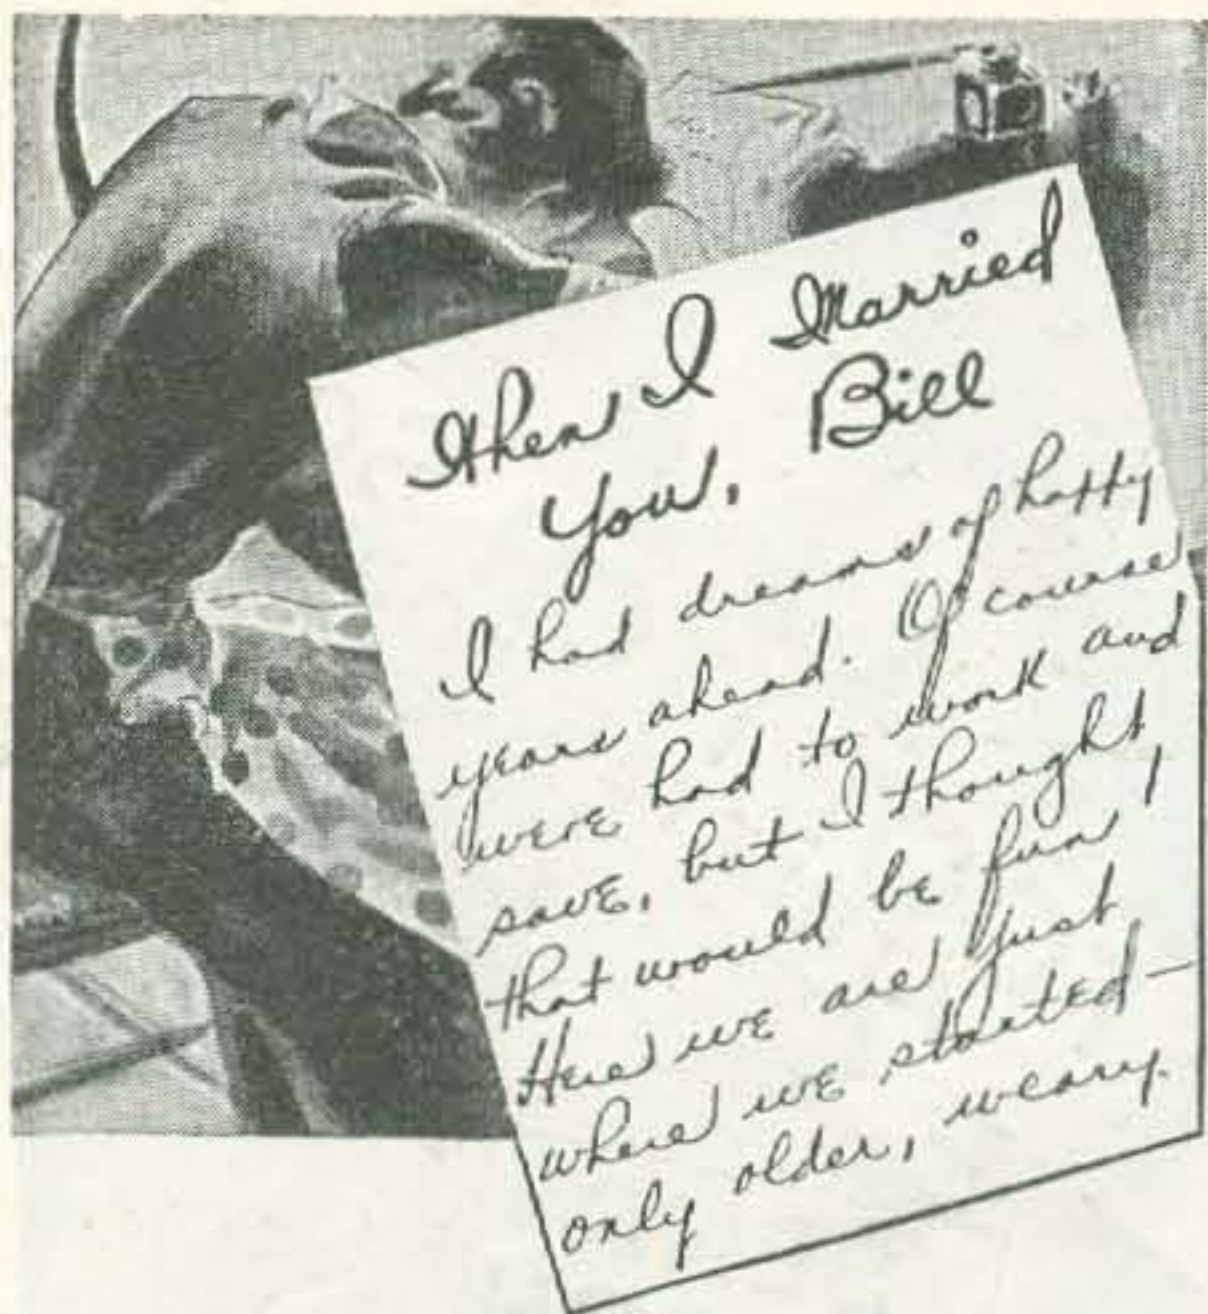 When I Married
You, Bill
I had dreams of happy
years ahead. Of course
were had to work and
save, but I thought,
that would be fun,
Here we are just
where we started —
only older, weary.